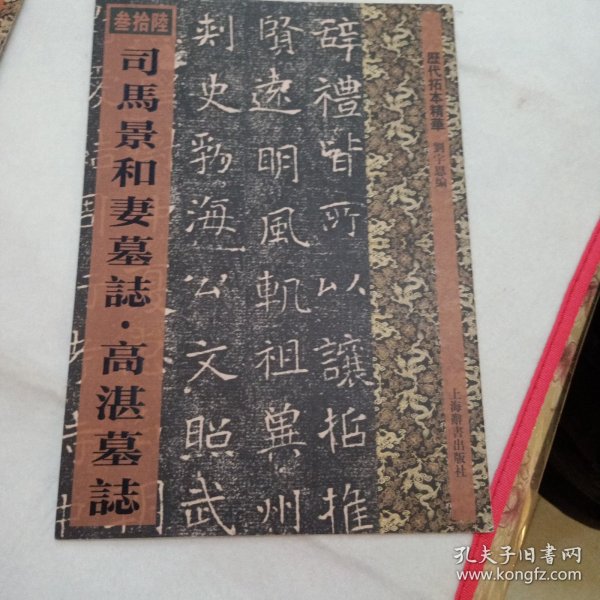 叁拾陸
司馬景和妻墓誌·高湛墓誌
歷代拓本精華
劉宇恩編
上海辭書出版社
辭禮皆所以讓招推
賢遠明風軌祖冀州
刺史勃海公文昭武
孔夫子旧书网
www.kongfz.com